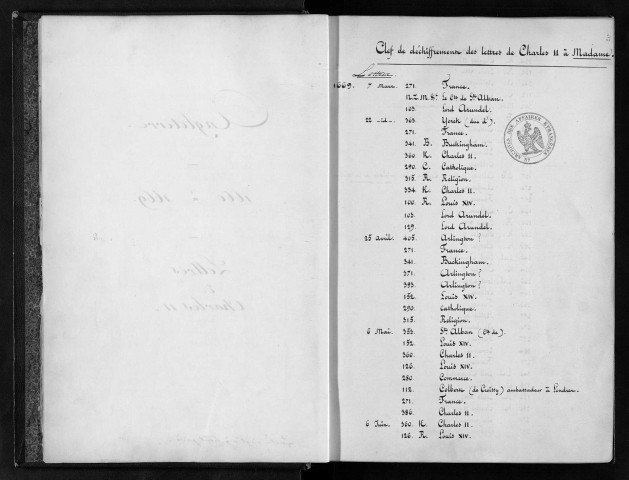 Clef de déchiffrement des lettres de Charles II à Madame.
Lettres
1669. 7 Mars. 271. France.
12.Z.M.St. Le Cte de St Alban.
103. Lord Arundel.
22 -d- 363. Yorck (duc d').
271. France.
341. B. Buckingham.
360. K. Charles II.
290. C. Catholique.
315. R. Religion.
334. K. Charles II.
100. R. Louis XIV.
103. Lord Arundel.
129. Lord Arundel.
25 Avril. 405. Arlington ?
271. France.
341. Buckingham.
371. Arlington ?
393. Arlington ?
152. Louis XIV.
290. Catholique.
315. Religion.
6 Mai. 353. St Alban (Cte de).
152. Louis XIV.
360. Charles II.
126. Louis XIV.
280. Commerce.
112. Colbert (de Croissy) ambassadeur à Londres.
271. France.
386. Charles II.
6 Juin. 360. K. Charles II.
126. R. Louis XIV.
ARCHIVES DES AFFAIRES ÉTRANGÈRES
Angleterre
1660 à 1669
Lettres
Charles II